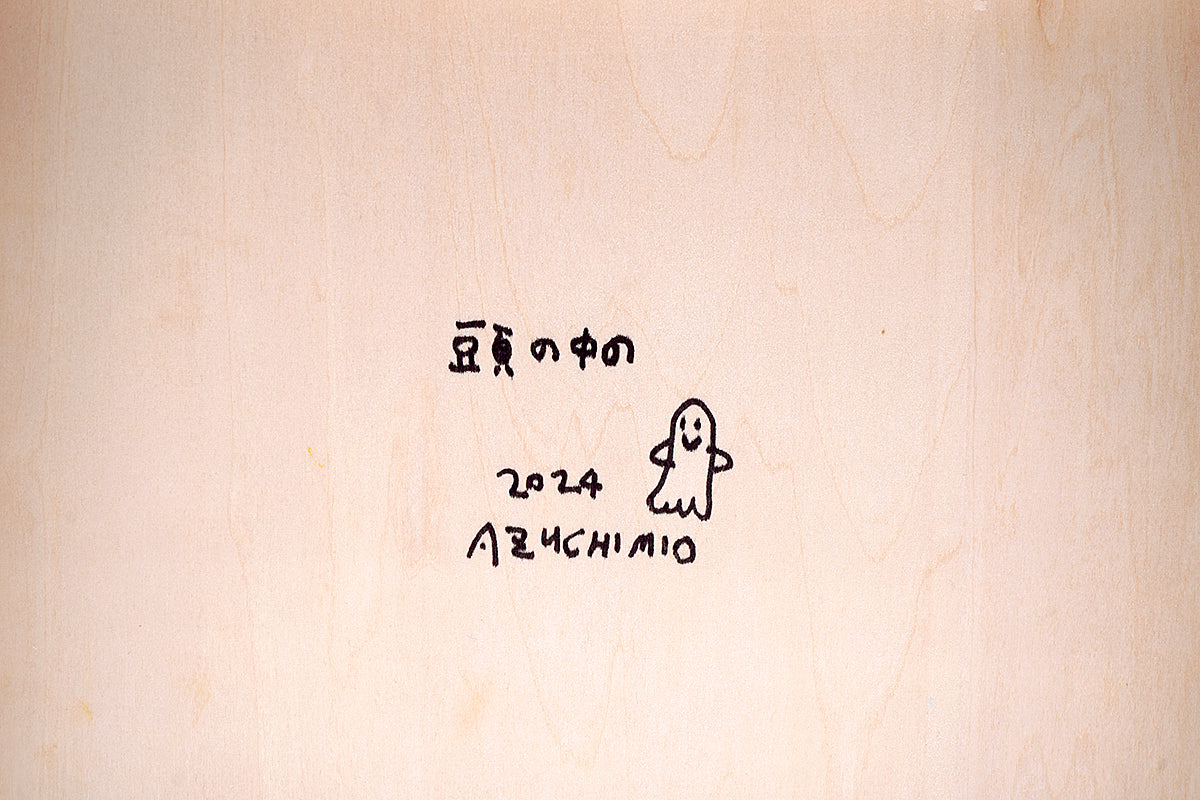 頭の中の
2024
AZUCHIMIO